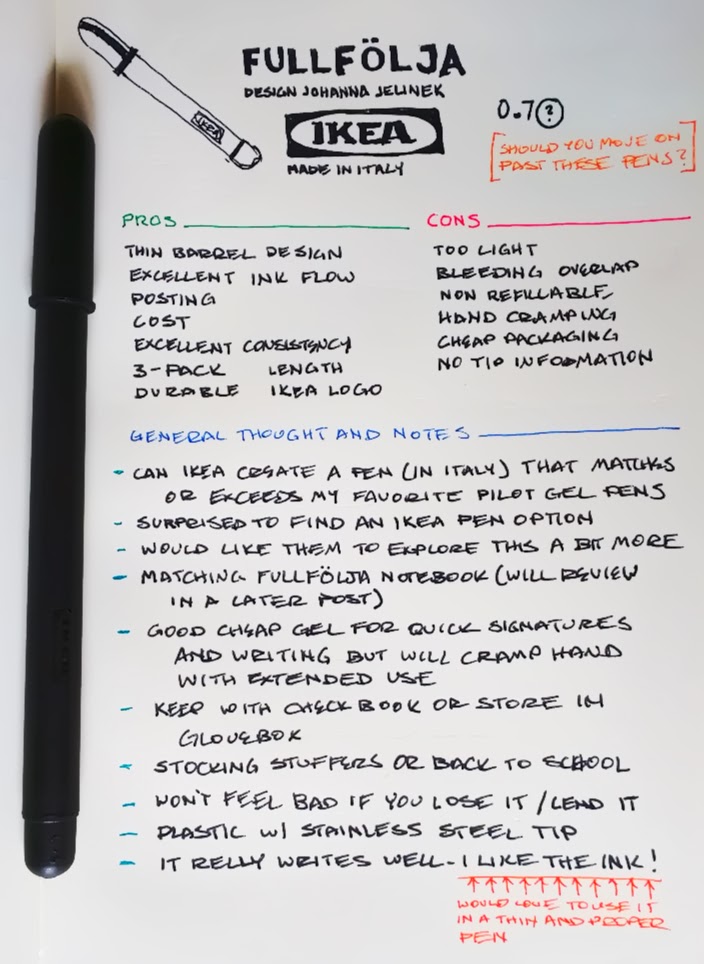 FULLFÖLJA
DESIGN JOHANNA JELINEK
IKEA
IKEA
MADE IN ITALY
0.7?
[SHOULD YOU MOVE ON
PAST THESE PENS?]
PROS
THIN BARREL DESIGN
EXCELLENT INK FLOW
POSTING
COST
EXCELLENT CONSISTENCY
3-PACK LENGTH
DURABLE IKEA LOGO
CONS
TOO LIGHT
BLEEDING OVERLAP
NON REFILLABLE
HAND CRAMPING
CHEAP PACKAGING
NO TIP INFOOMATION
GENERAL THOUGHT AND NOTES
- CAN IKEA CREATE A PEN (IN ITALY) THAT MATCHES
OR EXCEEDS MY FAVORITE PILOT GEL PENS
- SURPRISED TO FIND AN IKEA PEN OPTION
- WOULD LIKE THEM TO EXPLORE THIS A BIT MORE
- MATCHING FULLFÖLJA NOTEBOOK (WILL REVIEW
IN A LATER POST)
- GOOD CHEAP GEL FOR QUICK SIGNATURES
AND WRITING BUT WILL CRAMP HAND
WITH EXTENDED USE
- KEEP WITH CHECK BOOK OR STORE IN
GLOVEBOX
- STOCKING STUFFERS OR BACK TO SCHOOL
- WON'T FEEL BAD IF YOU LOSE IT / LEND IT
- PLASTIC W/ STAINLESS STEEL TIP
- IT RELLY WRITES WELL - I LIKE THE INK!
WOULD LOVE TO USE IT
IN A THIN AND PROPER
PEN